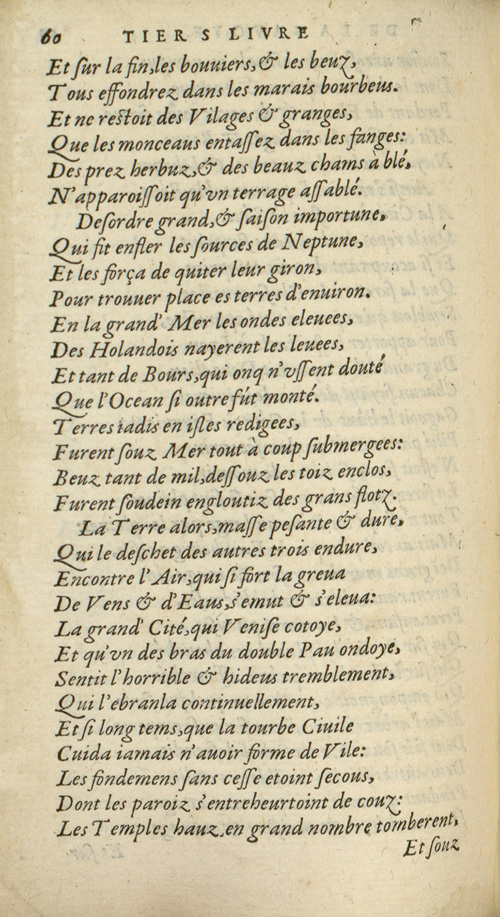 60 TIERS LIVRE
Et ſur la fin, les bouuiers, & les beuz,
Tous effondrez dans les marais bourbeus.
Et ne reſtoit des Vilages & granges,
Que les monceaus entaſſez dans les fanges:
Des prez herbuz, & des beauz chams a blé,
N'apparoiſſoit qu'vn terrage aſſablé.
Deſordre grand, & ſaiſon importune,
Qui fit enfler les ſources de Neptune,
Et les força de quiter leur giron,
Pour trouuer place es terres d'enuiron.
En la grand' Mer les ondes eleuees,
Des Holandois nayerent les leuees,
Et tant de Bours, qui onq n'vſſent douté
Que l'Ocean ſi outre fút monté.
Terres iadis en iſles redigees,
Furent ſouz Mer tout a coup ſubmergees:
Beuz tant de mil, deſſouz les toiz enclos,
Furent ſoudein engloutiz des grans flotz.
La Terre alors, maſſe peſante & dure,
Qui le deſchet des autres trois endure,
Encontre l'Air, qui ſi fort la greua
De Vens & d'Eaus, s'emut & s'eleua:
La grand' Cité, qui Veniſe cotoye,
Et qu'vn des bras du double Pau ondoye,
Sentit l'horrible & hideus tremblement,
Qui l'ebranla continuellement,
Et ſi long tems, que la tourbe Ciuile
Cuida iamais n'auoir forme de Vile:
Les fondemens ſans ceſſe etoint ſecous,
Dont les paroiz s'entreheurtoint de couz:
Les Temples hauz en grand nombre tomberent,
Et ſouz